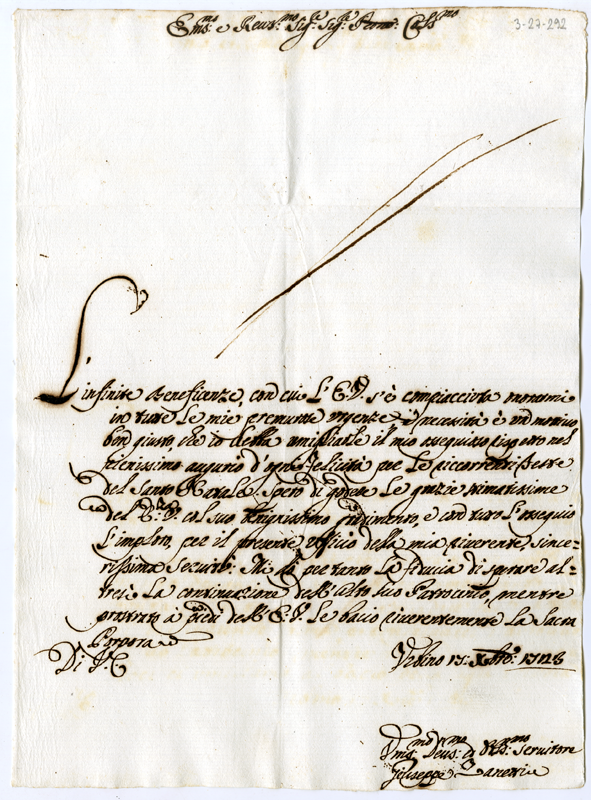 3-27-292
Em.mo e Rev.mo Sig.re Sig.re Pron.
L'infinite Beneficenze, con cui L'E.V. s'è compiacciuta
in tutte Le mie premurose urgenze è un motivo
ben giusto, che io debba umiliarle il mio ossequioso rispetto nel
felicissimo augurio d'ogni Felicità per Le ricorrenti Feste
del Santo Natale. Spero di godere Le grazie stimatissime
dell'E.V. col suo benignissimo gradimento, e con tutto L'ossequio
L'imploro, per il presente offizio della mia riverente, since-
rissima Servitù. Mi dà pertanto La fiducia di sperare al-
tresì La continuazione dell'alto suo Patrocinio, mentre
prostrato à piedi dell'E.V. Le bacio riverentemente La Sacra
Porpora
Di V.E.
Urbino 17: Xbre: 1728
Um.mo Dev.mo ed Obb.mo Servitore
Giuseppe Zanetti